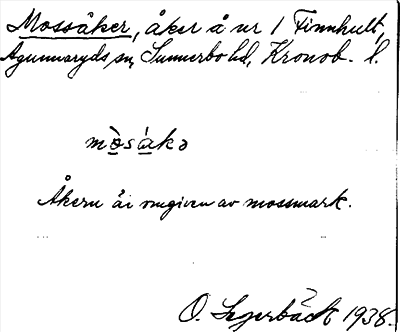 Mossåker, åker å nr 1 Finnhult,
Agunnaryds sn, Sunnerbo hd, Kronob. l.
Åkern är omgiven av mossmark.
O. 1938.